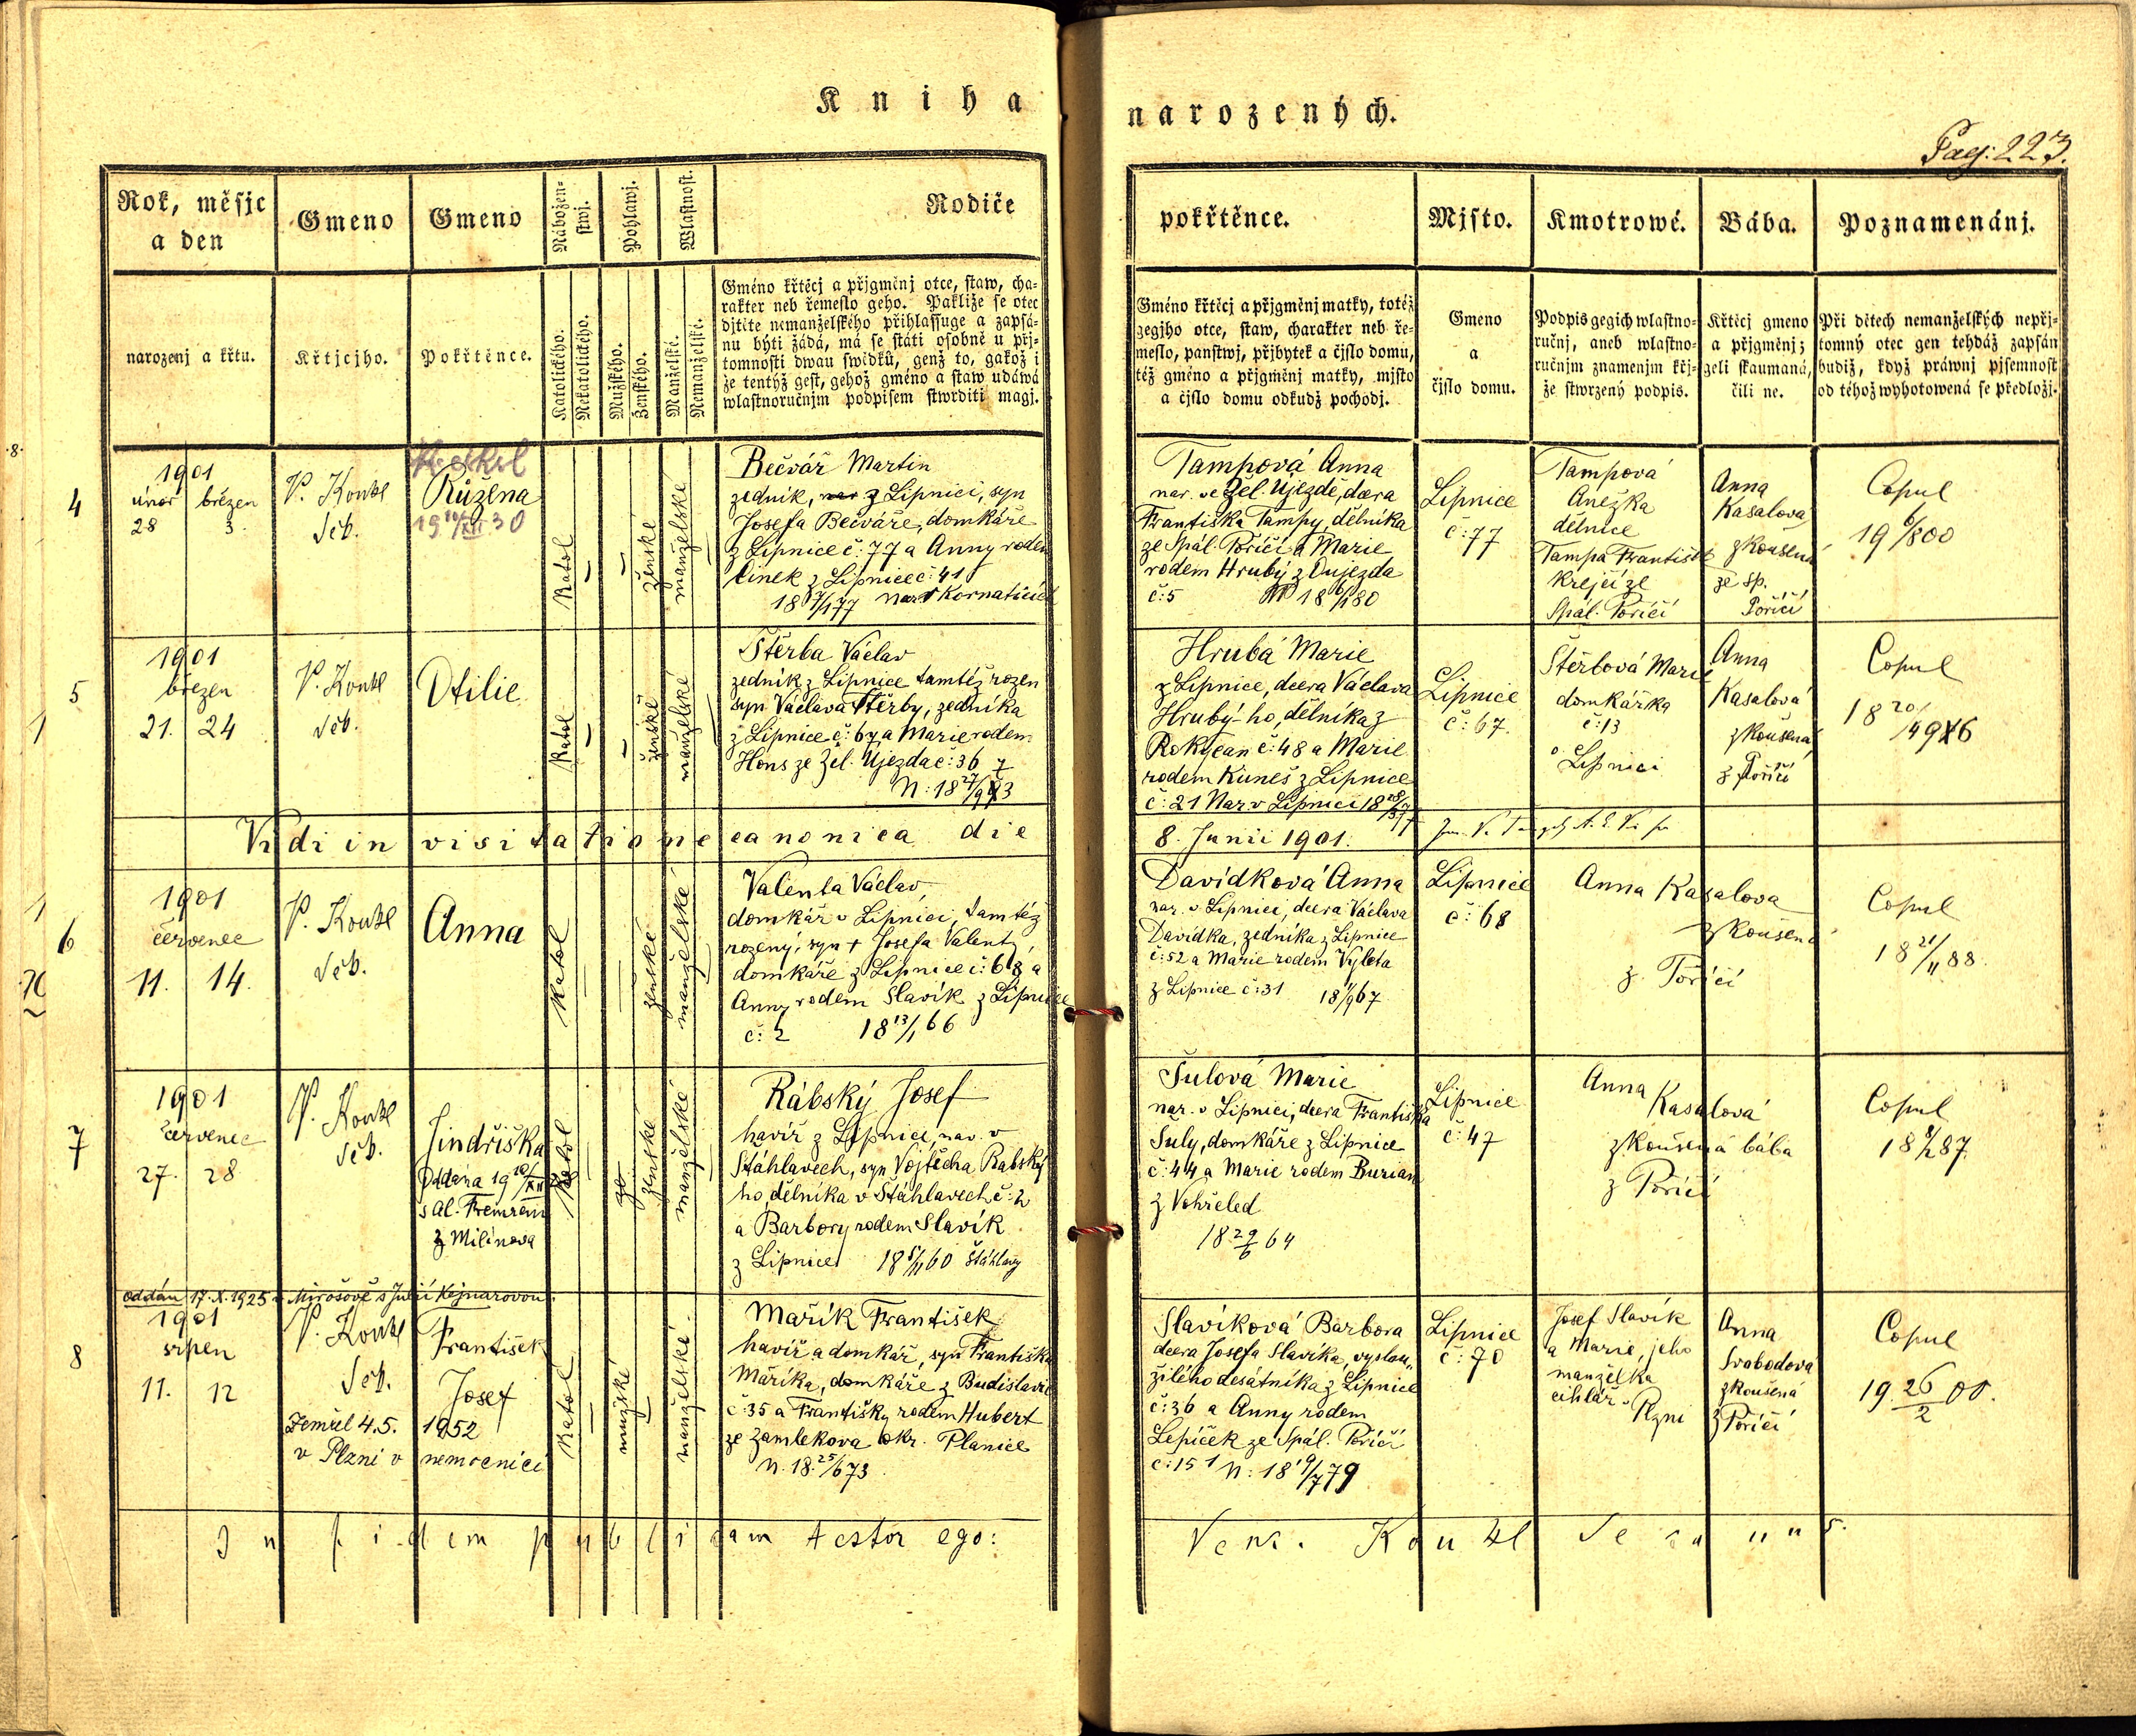 Kniha narozených.
Pag: 223.
Rok, měsjc a den
narozenj a křtu.
Gmeno
Křtjcjho.
Gmeno
Pokřtěnce.
Nábožen-
stwj.
Katolického.
Nekatolického.
Pohlawj.
Mužského.
Ženského.
Wlastnost.
Manželské.
Nemanželské.
Rodiče pokřtěnce.
Gméno křtěcj a přjgměnj otce, staw, cha-
rakter neb řemeslo geho. Pakliže se otec
djtěte nemanželského přihlassuge a zapsá-
nu býti žádá, má se státi osobně u přj-
tomnosti dwau swědků, genž to, gakož i
že tentýž gest, gehož gméno a staw udáwá
wlastnoručnjm podpisem stwrditi magj.
Gméno křtěcj a přjgměnj matky, totéž
gegjho otce, staw, charakter neb ře-
meslo, panstwj, přjbytek a čjslo domu,
též gméno a přjgměnj matky, mjsto
a čjslo domu odkudž pochodj.
Mjsto.
Gmeno
a
čjslo domu.
Kmotrowé.
Podpis gegich wlastno-
ručnj, aneb wlastno-
ručnjm znamenjm křj-
že stwrzený podpis.
Bába.
Křtěcj gmeno
a přjgměnj;
geli skaumaná,
čili ne.
Poznamenánj.
Při dětech nemanželských nepřj-
tomný otec gen tehdáž zapsán
budiž, když práwnj pjsemnost
od téhož wyhotowená se předložj.
8.
4
1901
únor březen
28 3.
V. Konzl
Seb.
Růžena
19 30
Katol
ženské
manželské
Bečvář Martin
zedník, nar z Lipnici, syn
Josefa Bečváře, domkáře
z Lipnice č: 77 a Anny rodem
Cinek z Lipnice č: 41
nar v Kornaticích
Tampová Anna
nar. ve Žel. Újezdě, dcera
Františka Tampy, dělníka
ze Spál. Poříčí a Marie
rodem Hrubý z Oujezda
č: 5
Lipnice
č: 77
Tampová
Anežka
dělnice
Tampa František
krejčí ze
Spál. Poříčí
Anna
Kasalová
zkoušená
ze sp.
Poříčí
Copul
19 6/8 00
5
1
1901
březen
21. 24
V. Konzl
Seb.
Otilie
Katol
ženské
manželské
Štěrba Václav
zedník z Lipnice tamtéž rozen
syn Václava Štěrby, zedníka
z Lipnice č: 67 a Marie rodem
Hons ze Žel. Újezda č: 36
Hrubá Marie
z Lipnice, dcera Václava
Hrubý-ho, dělníka z
Rokycan č: 48 a Marie
rodem Kuneš z Lipnice
č: 21 Nar v Lipnici
Lipnice
č: 67.
Štěrbová Marie
domkářka
č: 13
v Lipnici
Anna
Kasalová
zkoušená
z Poříčí
Copul
Vidi in visitatione canonica die 8. Junii 1901.
1
6
1901
červenec
11. 14.
V. Konzl
Seb.
Anna
Katol
ženské
manželské
Valenta Václav,
domkář v Lipnici, tamtéž
rozený, syn + Josefa Valenty,
domkáře z Lipnice č: 68 a
Anny rodem Slavík z Lipnice
č: 2 18 13/1 66
Davídková Anna
nar. v Lipnici, dcera Václava
Davídka, zedníka z Lipnice
č: 52 a Marie rodem Výleta
z Lipnice č: 31 18 1/9 67
Lipnice
č: 68
Anna Kasalova
zkoušená
z Poříčí
Copul
18 21/11 88.
7
1901
červenec
27. 28
V. Konzl
Seb.
Jindřiška
Oddána 19
s Al.
z Milínova
Katol
ženské
manželské
Rábský Josef
havíř z Lipnice, nar. v
Štáhlavech, syn Vojtěcha Rabský
ho, dělníka v Štáhlavech č: 2
a Barbory rodem Slavík
z Lipnice Štáhlavy
Šulová Marie
nar. v Lipnici, dcera Františka
Šuly, domkáře z Lipnice
č: 44 a Marie rodem Burian
z Vohřeled
18 29/6 64
Lipnice
č: 47
Anna
Kasalová
zkoušená bába
z Poříčí
Copul
oddán 17. X. 1925 v Mirošově s Julií Kejnarovou.
8
1901
srpen
11. 12
V. Konzl
Seb.
František
Josef
Zemřel 4.5. 1952
v Plzni v nemocnici
Katol
mužské
manželské
Mařík František
havíř a domkář, syn Františka
Maříka, domkáře z Budislavic
č: 35 a Františky rodem Hubert
ze Zamlekova okr. Planice
N. 18. 25/6 73
Slavíková Barbora
dcera Josefa Slavíka, vyslou„
žilého desátníka z Lipnice
č: 36 a Anny rodem
Lepíček ze Spál. Poříčí
č: 151 N: 18 19/7 79
Lipnice
č: 70
Josef Slavík
a Marie, jeho
manželka
cihlář v Plzni
Anna
Svobodova
zkoušená
z Poříčí
Copul
19. 26/2 00.
In fidem publicam testor ego: Venc. Konzl